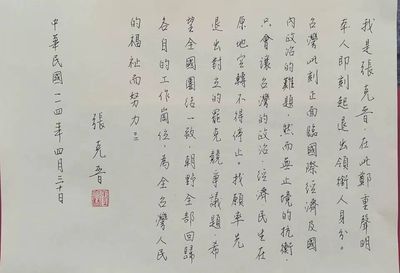 我是張克晉,在此鄭重聲明
本人即刻起退出領銜人身分。
台灣此刻正面臨國際經濟及國
內政治的難題,然而無止境的抗衡,
只會讓台灣的政治、經濟民生在
原地空轉不得停止。我願率先
退出對立的罷免競爭議題,希
望全國團結一致,朝野全部回歸
各自的工作崗位,為全台灣人民
的福祉而努力!!
張克晉
中華民國一一四年四月三十日